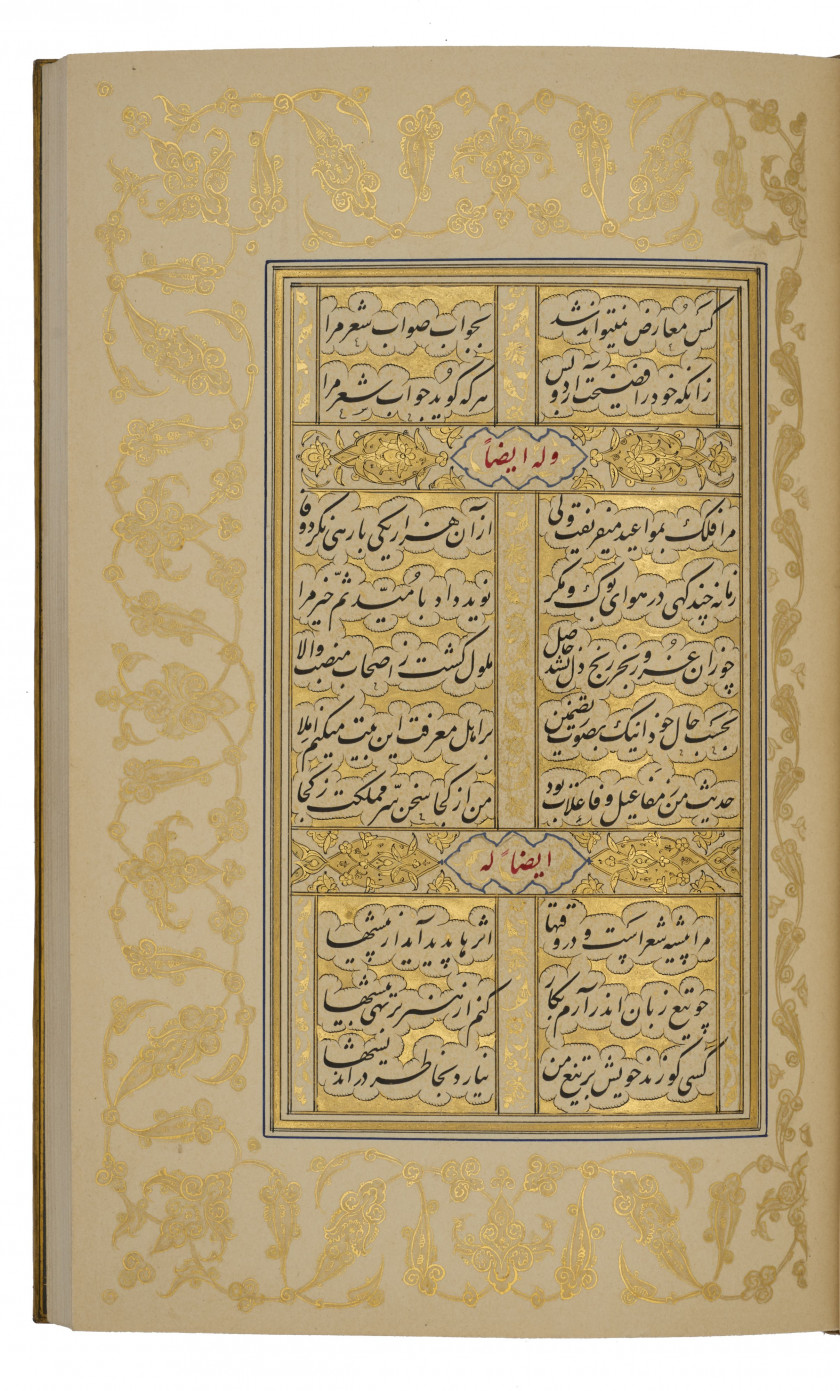 کس معارض نمیتواند شد
بجواب صواب شعر مرا
زانکه خود را فضیحت آرد و بس
هر که گوید جواب شعر مرا
وله ایضاً
مرا فلک بمواعید میفریفت ولی
از آن هزار یکی بار هنی نکرد وفا
زمانه چند گهی در هوای بوک و مگر
نوید داد بامید ثم خیر مرا
چو زان غرور بجز رنج دل نشد حاصل
ملول گشت ز اصحاب منصب والا
بحسب حال خود اینک بصورت تضمین
بر اهل معرفت این بیت میکنم املا
حدیث من ز مفاعیل و فاعلات بود
من از کجا سخن سر مملکت ز کجا
ایضاً له
مرا پیشه شعر است و در وقتها
اثرها پدید آید از پیشها
چو تیغ زبان اندر آرم بکار
کنم از هنربر تهی بیشها
کسی کو زند خویش بر تیغ من
نیارد بخاطر در اندیشها